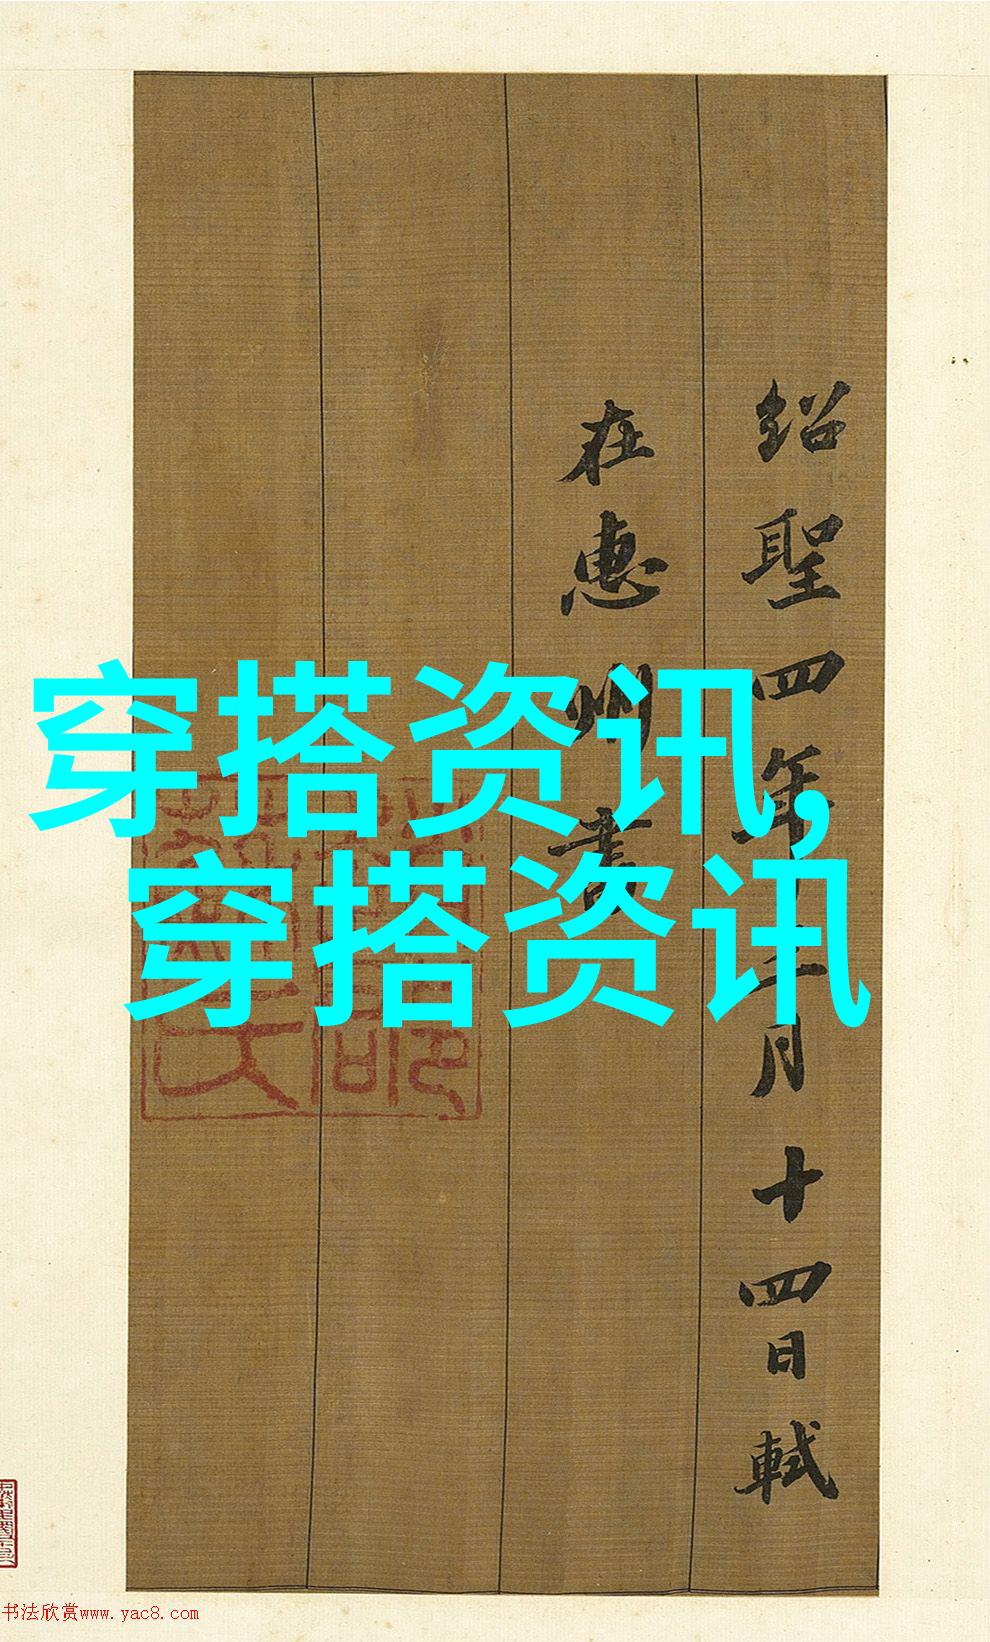 紹聖四年二月十四日軾
在惠州書
穿搭资讯,
穿搭资讯
书法欣赏www.yac8.com